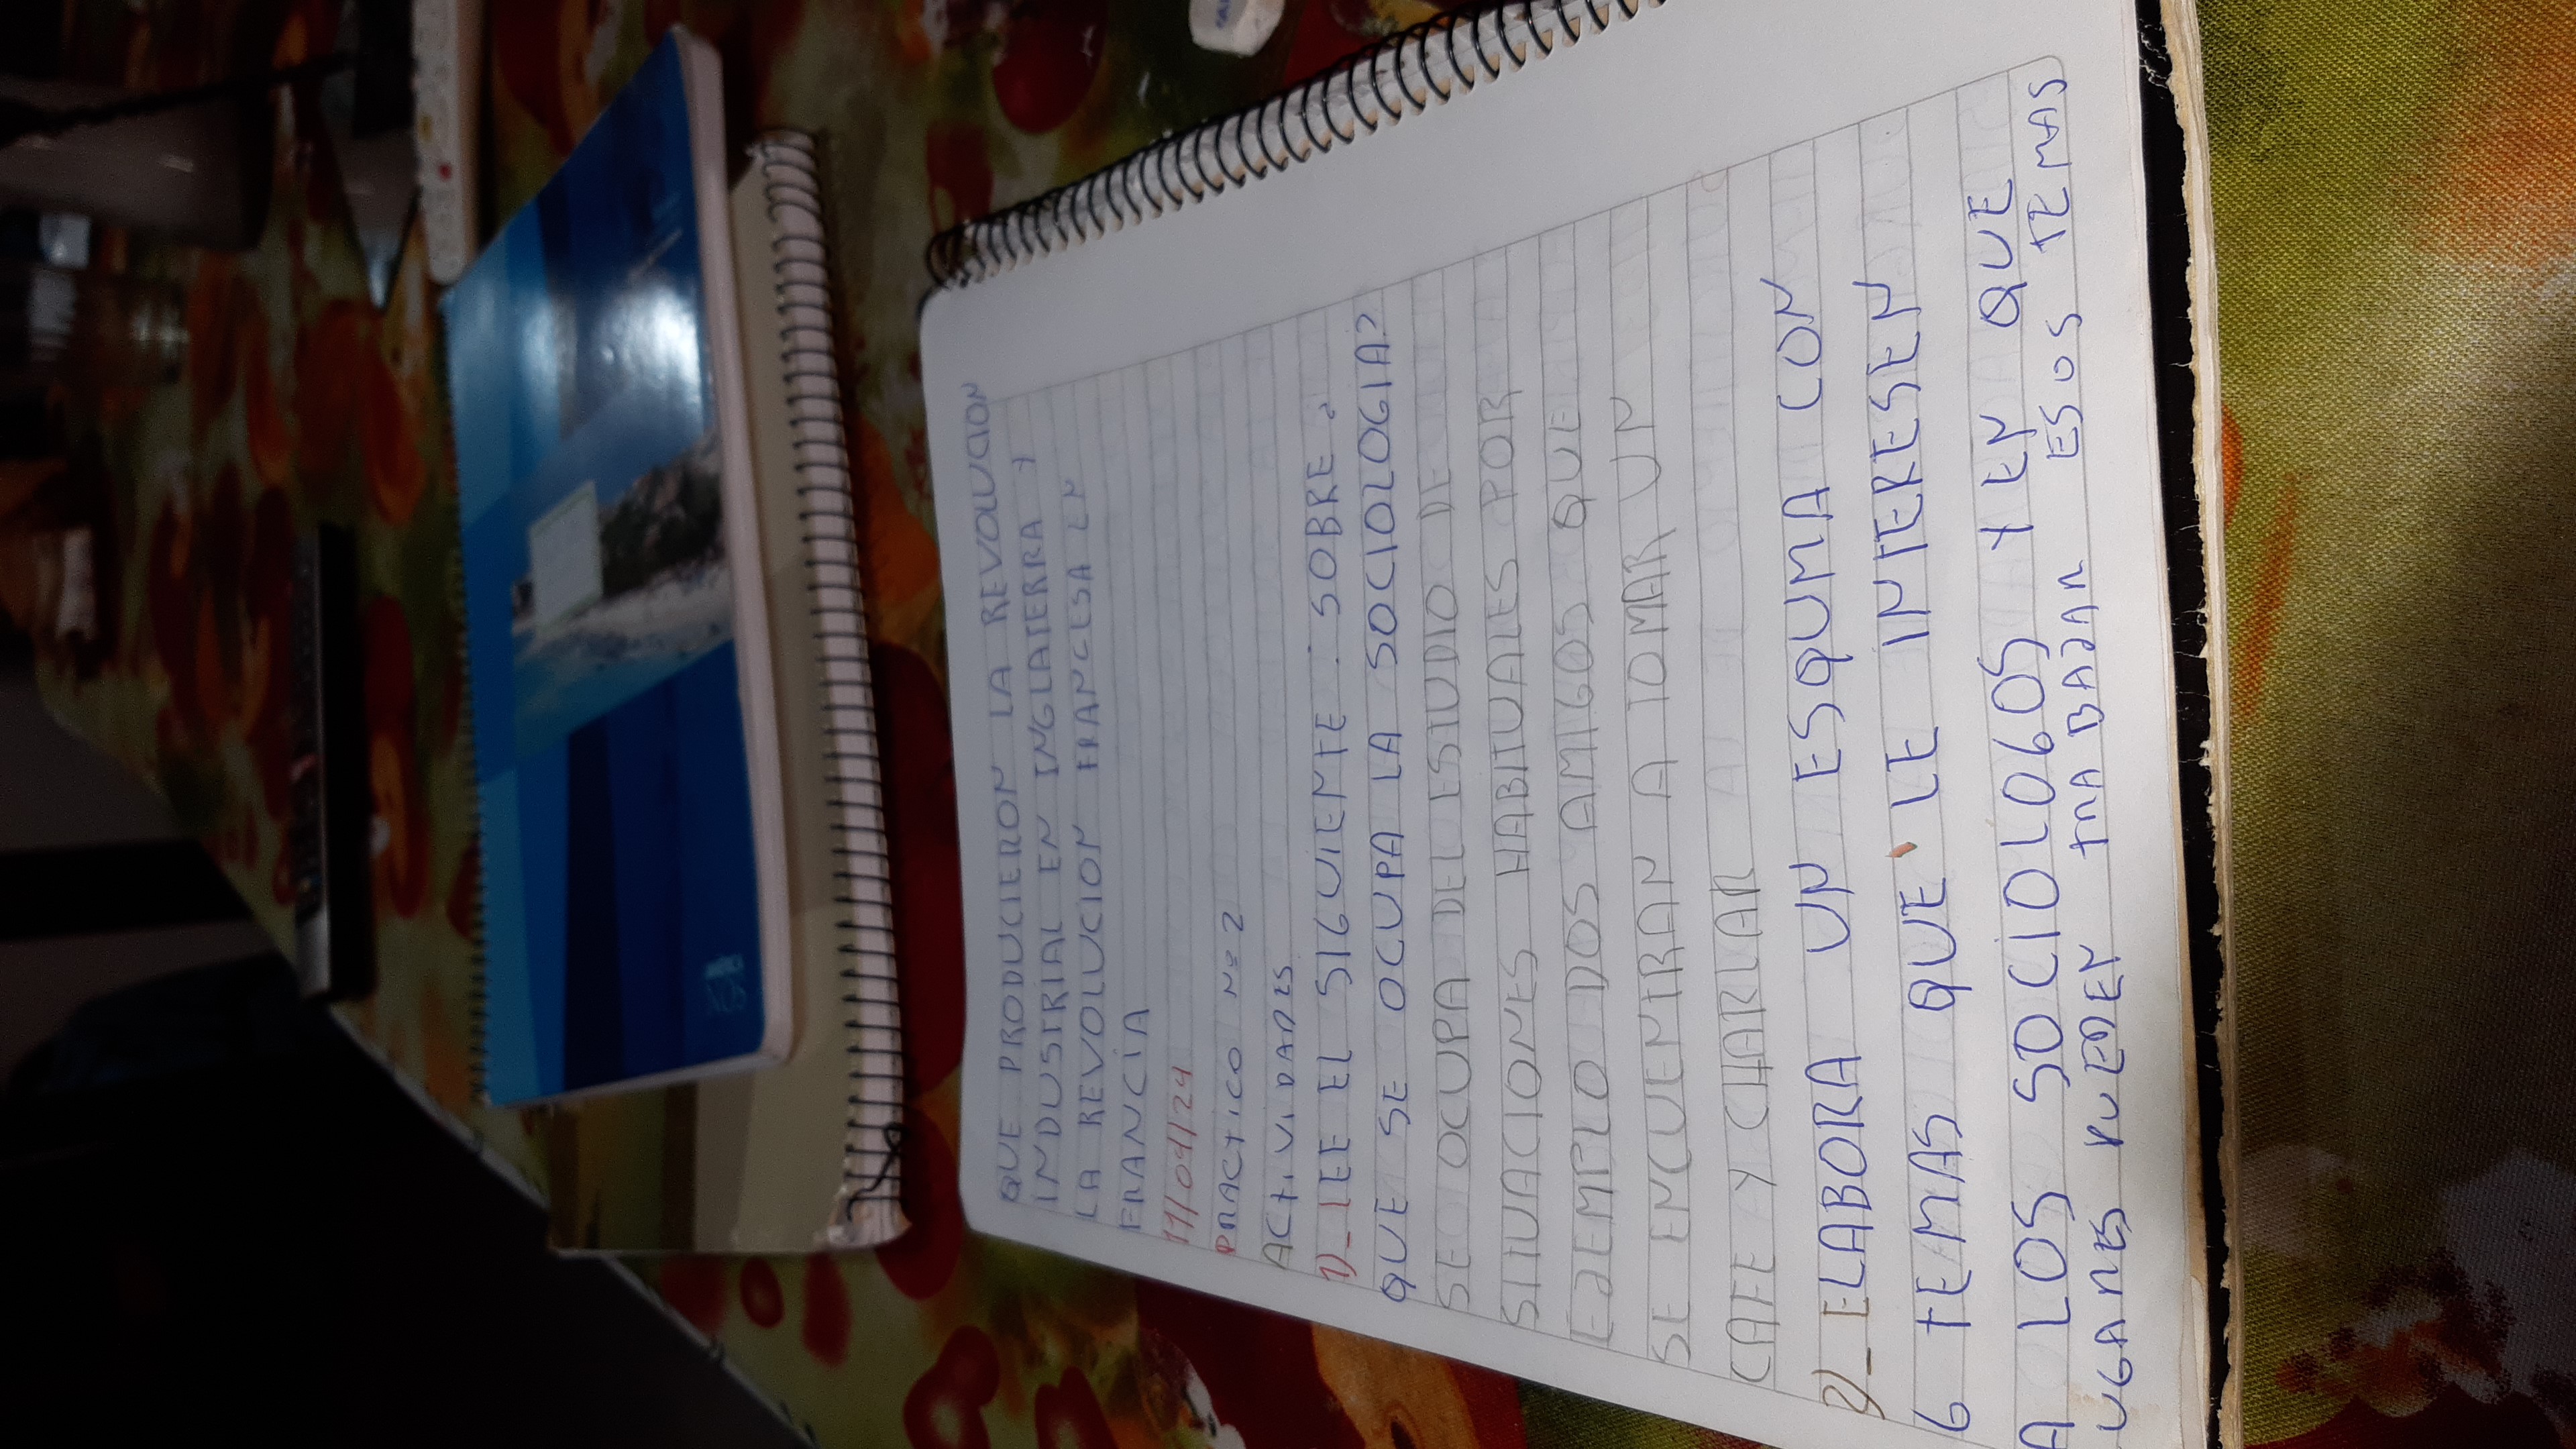 QUE PRODUCIERON LA REVOLUCION
INDUSTRIAL EN INGLATERRA Y
LA REVOLUCION FRANCESA EN
FRANCIA
11/04/24
PRACTICO Nº 2
ACTIVIDADES
1)_ LEE EL SIGUIENTE : SOBRE ¿
QUE SE OCUPA LA SOCIOLOGIA?
SE OCUPA DEL ESTUDIO DE
SITUACIONES HABITUALES POR
EJEMPLO DOS AMIGOS QUE
SE ENCUENTRAN A TOMAR UN
CAFE Y CHARLAR
2)_ ELABORA UN ESQUMA CON
6 TEMAS QUE LE INTERESEN
A LOS SOCIOLOGOS Y EN QUE
UGARES PUEDEN TRABAJAR ESOS TEMAS